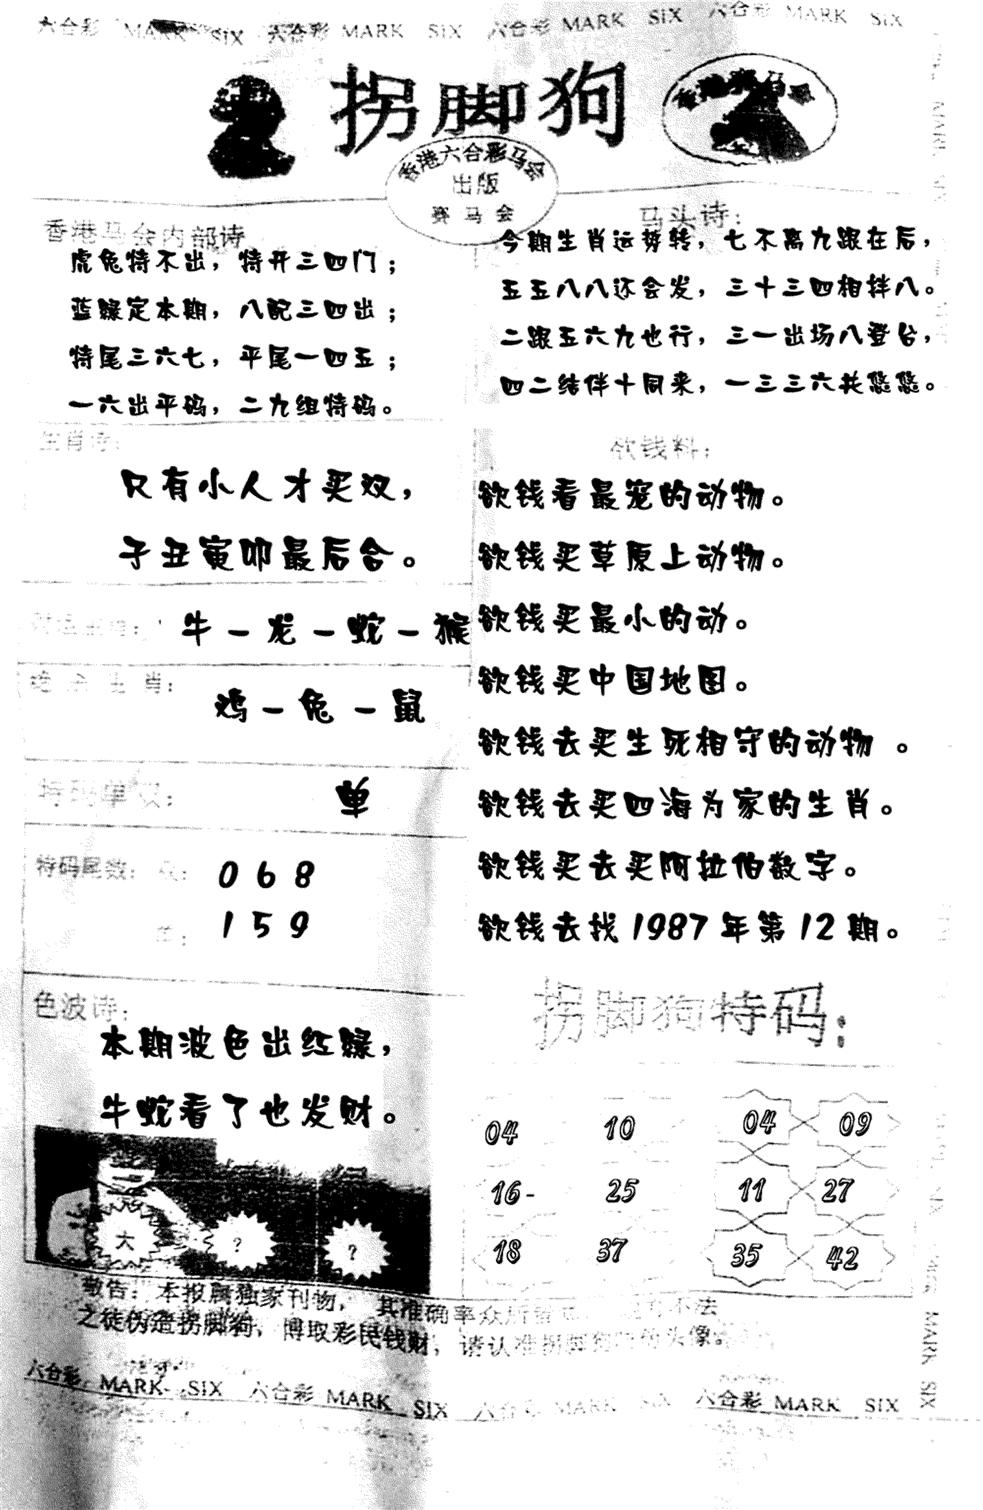 六合彩 MARK SIX 六合彩 MARK SIX 六合彩 MARK SIX 六合彩 MARK SIX
拐脚狗
香港赛马会
香港六合彩马会
出版
赛马会
香港马会内部诗
虎兔特不出，特开三四门；
蓝绿定本期，八配三四出；
特尾三六七，平尾一四五；
一六出平码，二九组特码。
马头诗：
今期生肖运势转，七不离九跟在后，
五五八八还会发，三十三四相拌八。
二跟五六九也行，三一出场八登台，
四二结伴十同来，一三三六共悠悠。
生肖诗：
只有小人才买双，
子丑寅卯最后合。
牛－龙－蛇－猴
绝杀生肖：
鸡－兔－鼠
特码单双：
单
特码尾数：双：068
单：159
色波诗：
本期波色出红绿，
牛蛇看了也发财。
大 ? ?
欲钱料：
欲钱看最宠的动物。
欲钱买草原上动物。
欲钱买最小的动。
欲钱买中国地图。
欲钱去买生死相守的动物 。
欲钱去买四海为家的生肖。
欲钱买去买阿拉伯数字。
欲钱去找1987年第12期。
拐脚狗特码：
04 10 04 09
16- 25 11 27
18 37 35 42
敬告：本报属独家刊物，其准确率众所 不法
之徒伪造拐脚狗，博取彩民钱财，请认准拐脚狗 头像。
六合彩 MARK SIX 六合彩 MARK SIX 六合彩 MARK SIX 六合彩 MARK SIX
MARK SIX